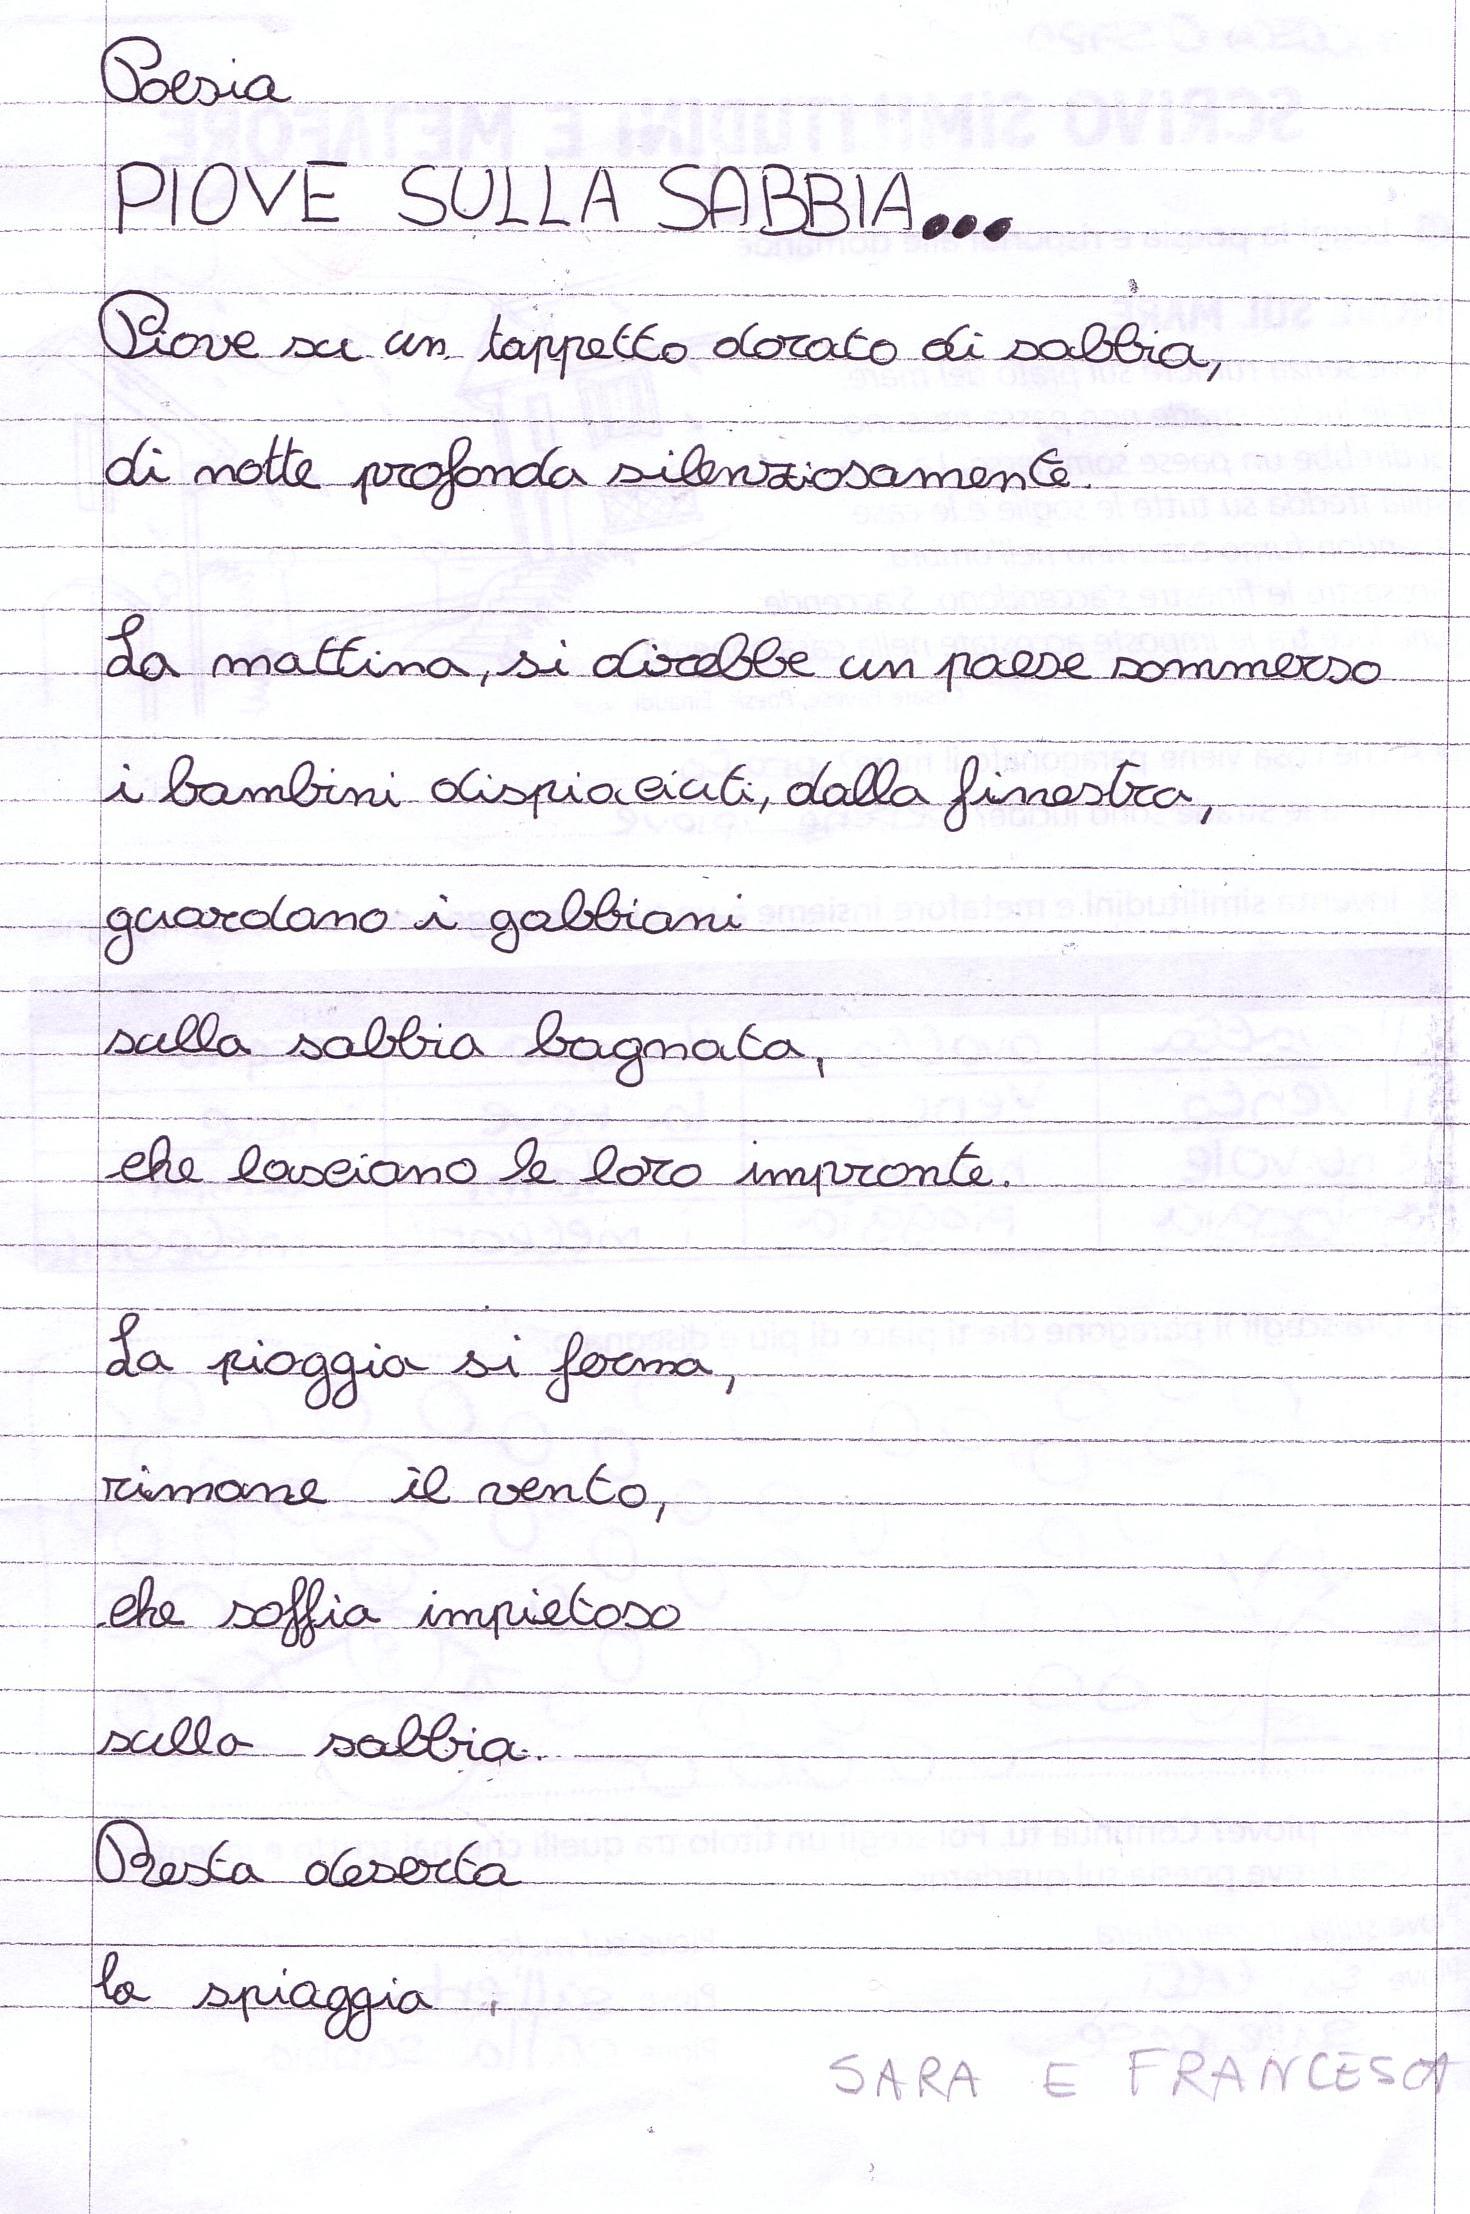 Poesia
PIOVE SULLA SABBIA...
Piove su un tappetto dorato di sabbia,
di notte profonda silenziosamente.
La mattina, si direbbe un paese sommerso
i bambini dispiaciuti, dalla finestra,
guardano i gabbiani
sulla sabbia bagnata,
che lasciano le loro impronte.
La pioggia si ferma,
rimane il vento,
che soffia impietoso
sulla sabbia.
Resta deserta
la spiaggia.
SARA E FRANCESCA